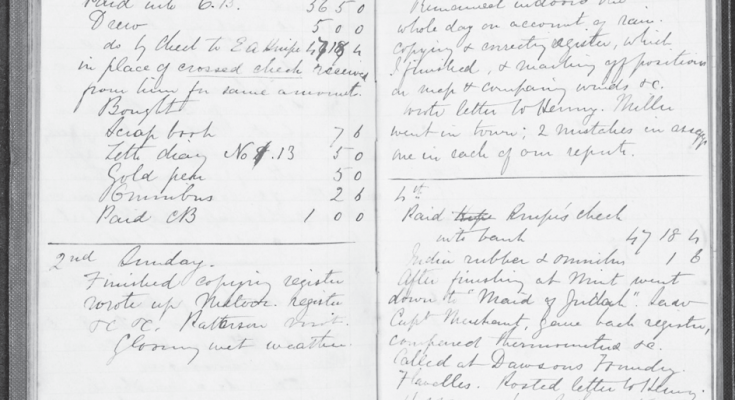 Paid into C.B. 36 5 0
Drew 5 0 0
do by Check to E A Knipe 47 18 4
in place of crossed check received
from him for same amount.
Bought
Scrap book 7 6
Letts diary No 13 5 0
Gold pen 5 0
Omnibus 2 6
Paid CB 1 0 0
2nd Sunday.
Finished copying register
wrote up Meteor. register
&c &c. Patterson visit.
Gloomy wet weather.
Remained indoors the
whole day on account of rain.
copying & correcting register, which
I finished, & marking off positions
on map & comparing winds &c.
wrote letter to Henny. Miller
went in town; 2 mistakes in
one in each of our reports.
4th
Paid Knipe's check
into bank 47 18 4
India rubber & omnibus 1 6
After finishing at Mint went
down to "Maid of Judah". Saw
Capt Merchant, gave back register,
compared thermometers &c.
Called at Dawsons Foundry.
Flavelles. Posted letter to Henny.